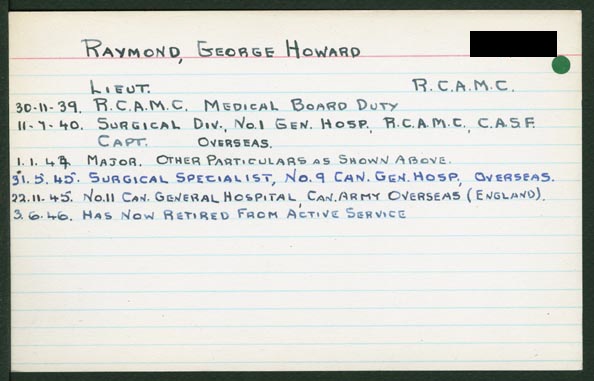 RAYMOND, GEORGE HOWARD
LIEUT. R.C.A.M.C.
30-11-39. R.C.A.M.C. MEDICAL BOARD DUTY
11-7-40. SURGICAL DIV., NO.1 GEN. HOSP., R.C.A.M.C., C.A.S.F.
CAPT. OVERSEAS.
1.1.42. MAJOR. OTHER PARTICULARS AS SHOWN ABOVE.
31.5.45. SURGICAL SPECIALIST, NO.9 CAN. GEN. HOSP., OVERSEAS.
22.11-45. NO.11 CAN. GENERAL HOSPITAL, CAN. ARMY OVERSEAS (ENGLAND).
3.6.46. HAS NOW RETIRED FROM ACTIVE SERVICE